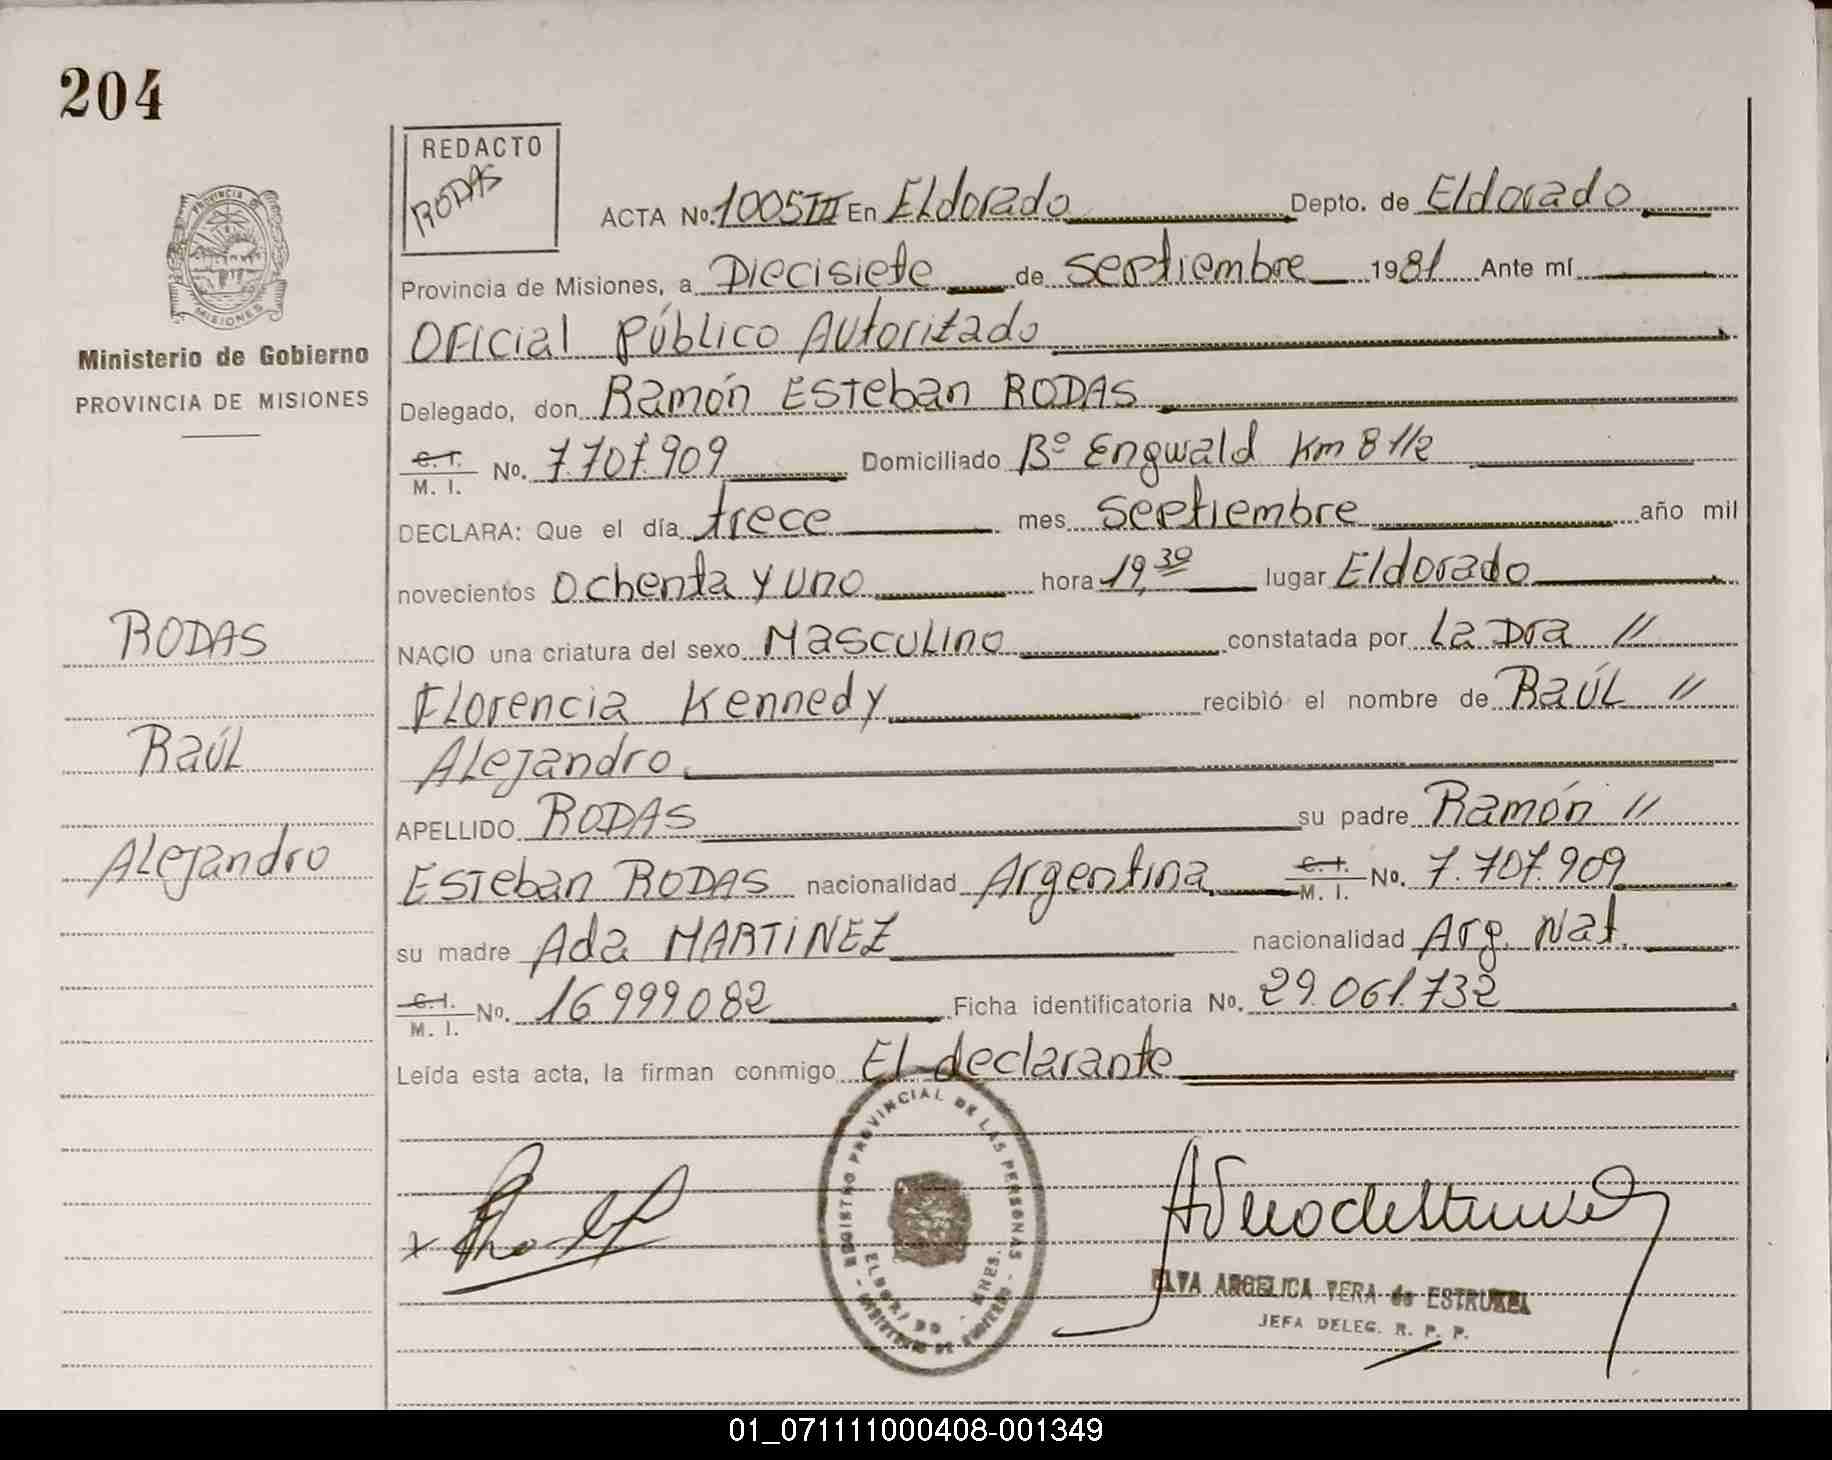 204
REDACTO
RODAS
PROVINCIA DE
MISIONES
Ministerio de Gobierno
PROVINCIA DE MISIONES
ACTA No. 1005 III En Eldorado Depto. de Eldorado
Provincia de Misiones, a Diecisiete de septiembre 1981 Ante mí
Oficial Público Autorizado
Delegado, don Ramón Esteban RODAS
C. I.
M. I. No. 7.707.909 Domiciliado Bº Engwald Km 8 1/2
DECLARA: Que el día trece mes septiembre año mil
novecientos ochenta y uno hora 19,30 lugar Eldorado
NACIO una criatura del sexo Masculino constatada por La Dra //
Florencia Kennedy recibió el nombre de Raúl //
Alejandro
APELLIDO RODAS su padre Ramón //
Esteban RODAS nacionalidad Argentina C. I. M. I. No. 7.707.909
su madre Ada MARTINEZ nacionalidad Arg. Nat.
C. I.
M. I. No. 16999082 Ficha identificatoria No. 29.061.732
Leída esta acta, la firman conmigo El declarante
RODAS
Raúl
Alejandro
REGISTRO PROVINCIAL DE LAS PERSONAS
ELDORADO - MNES.
ELVA ANGELICA VERA de ESTRUKEL
JEFA DELEG. R. P. P.
01_071111000408-001349